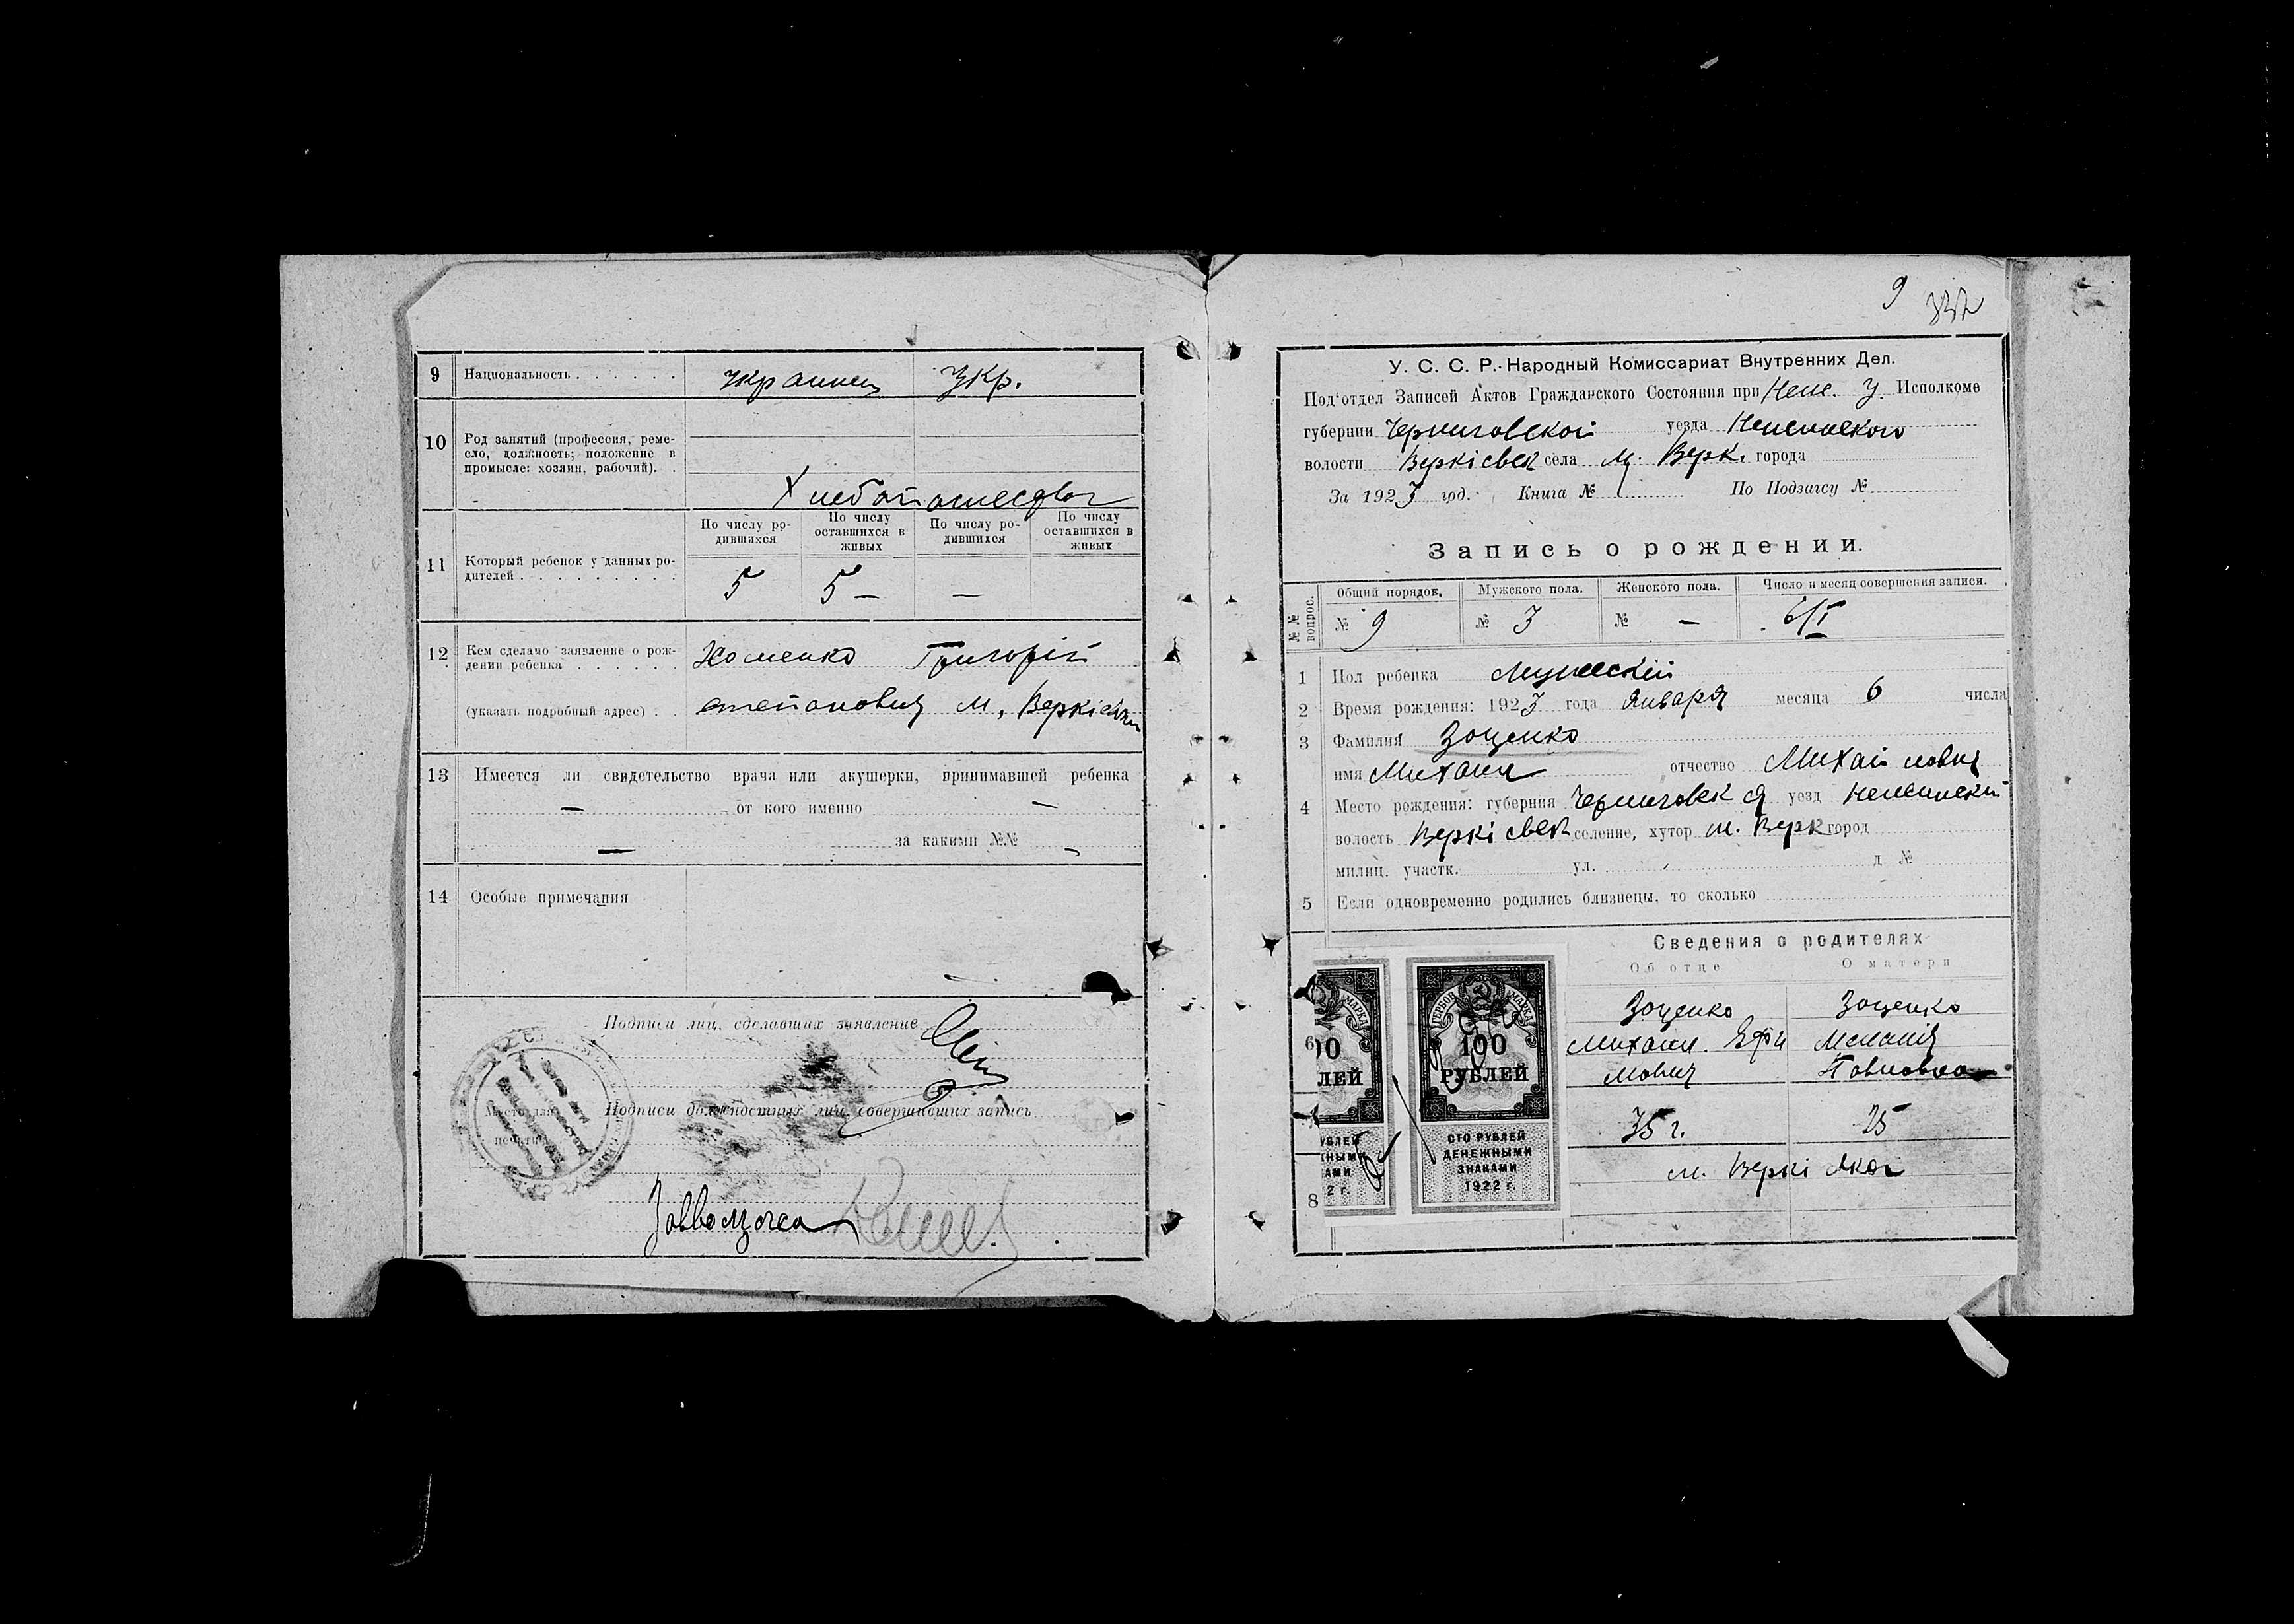 9 Национальность украинец Укр.
10 Род занятий (профессия, реме-
сло, должность; положение в
промысле: хозяин, рабочий).
Хлебопашество
11 Который ребенок у данных ро-
дителей
По числу ро-
дившихся
По числу
оставшихся в
живых
По числу ро-
дившихся
По числу
оставшихся в
живых
5 5 — —
12 Кем сделано заявление о рож-
дении ребенка Хоменко Григорій
(указать подробный адрес) степанович м. Веркіевки
13 Имеется ли свидетельство врача или акушерки, принимавшей ребенка
— от кого именно —
— за какими №№ —
14 Особые примечания
Подписи лиц, сделавших заявление
Место для
печати
Подписи должностных лиц, совершивших запись
9
У. С. С. Р. Народный Комиссариат Внутренних Дел.
Под'отдел Записей Актов Гражданского Состояния при Неж. У. Исполкоме
губернии Черниговской уезда Неженского
волости Веркіевск села м. Верк. города
За 1923 год. Книга № По Подзагсу №
Запись о рождении.
№№ вопрос.
Общий порядок. Мужского пола. Женского пола. Число и месяц совершения записи.
№ 9 № 3 № — 6/I
1 Пол ребенка Мужескій
2 Время рождения: 1923 года Января месяца 6 числа
3 Фамилия Зоценко
имя Михаил отчество Михайлович
4 Место рождения: губерния Черниговск ая уезд Неженский
волость Веркіевск селение, хутор м. Верк город
милиц. участк. ул. д. №
5 Если одновременно родились близнецы, то сколько
Сведения о родителях
Об отце О матери
6
Зоценко Зоценко
Михаил Ефи Мелания
мович Павловна
35 г. 25
м. Веркіевка
8
МАРКА
00
ЛЕЙ
УБЛЕЙ
НЫМИ
АМИ
2 г.
ГЕРБОВ МАРКА
100
РУБЛЕЙ
СТО РУБЛЕЙ
ДЕНЕЖНЫМИ
ЗНАКАМИ
1922 г.